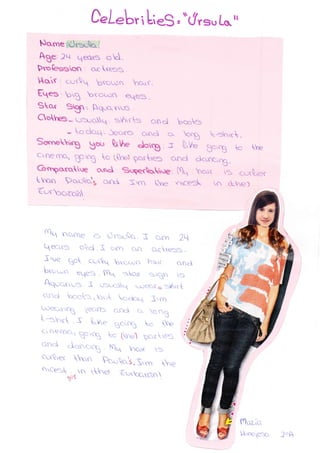 Celebrities: "Úrsula"
Name: Úrsula
Age: 24 years old.
Profession: actress
Hair: curly brown hair.
Eyes: big brown eyes.
Star Sign: Aquarius
Clothes - usually: skirts and boots
- today: Jeans and a long t-shirt.
Something you like doing: I like going to the
cinema, going to (the) parties and dancing.
Comparative and Superlative: My hair is curlier
than Paula's and I'm the nicest in (the)
Eurbazan!
My name is Úrsula. I am 24
years old. I am an actress.
I've got curly brown hair and
brown eyes. My star sign is
Aquarius. I usually wear skirt
and boots, but today I'm
wearing jeans and a long
t-shirt. I like going to the
cinema, going to (the) parties
and dancing. My hair is
curlier than Paula's. I'm the
nicest in (the) Eurbazan!
María
Hinojosa 2ºA